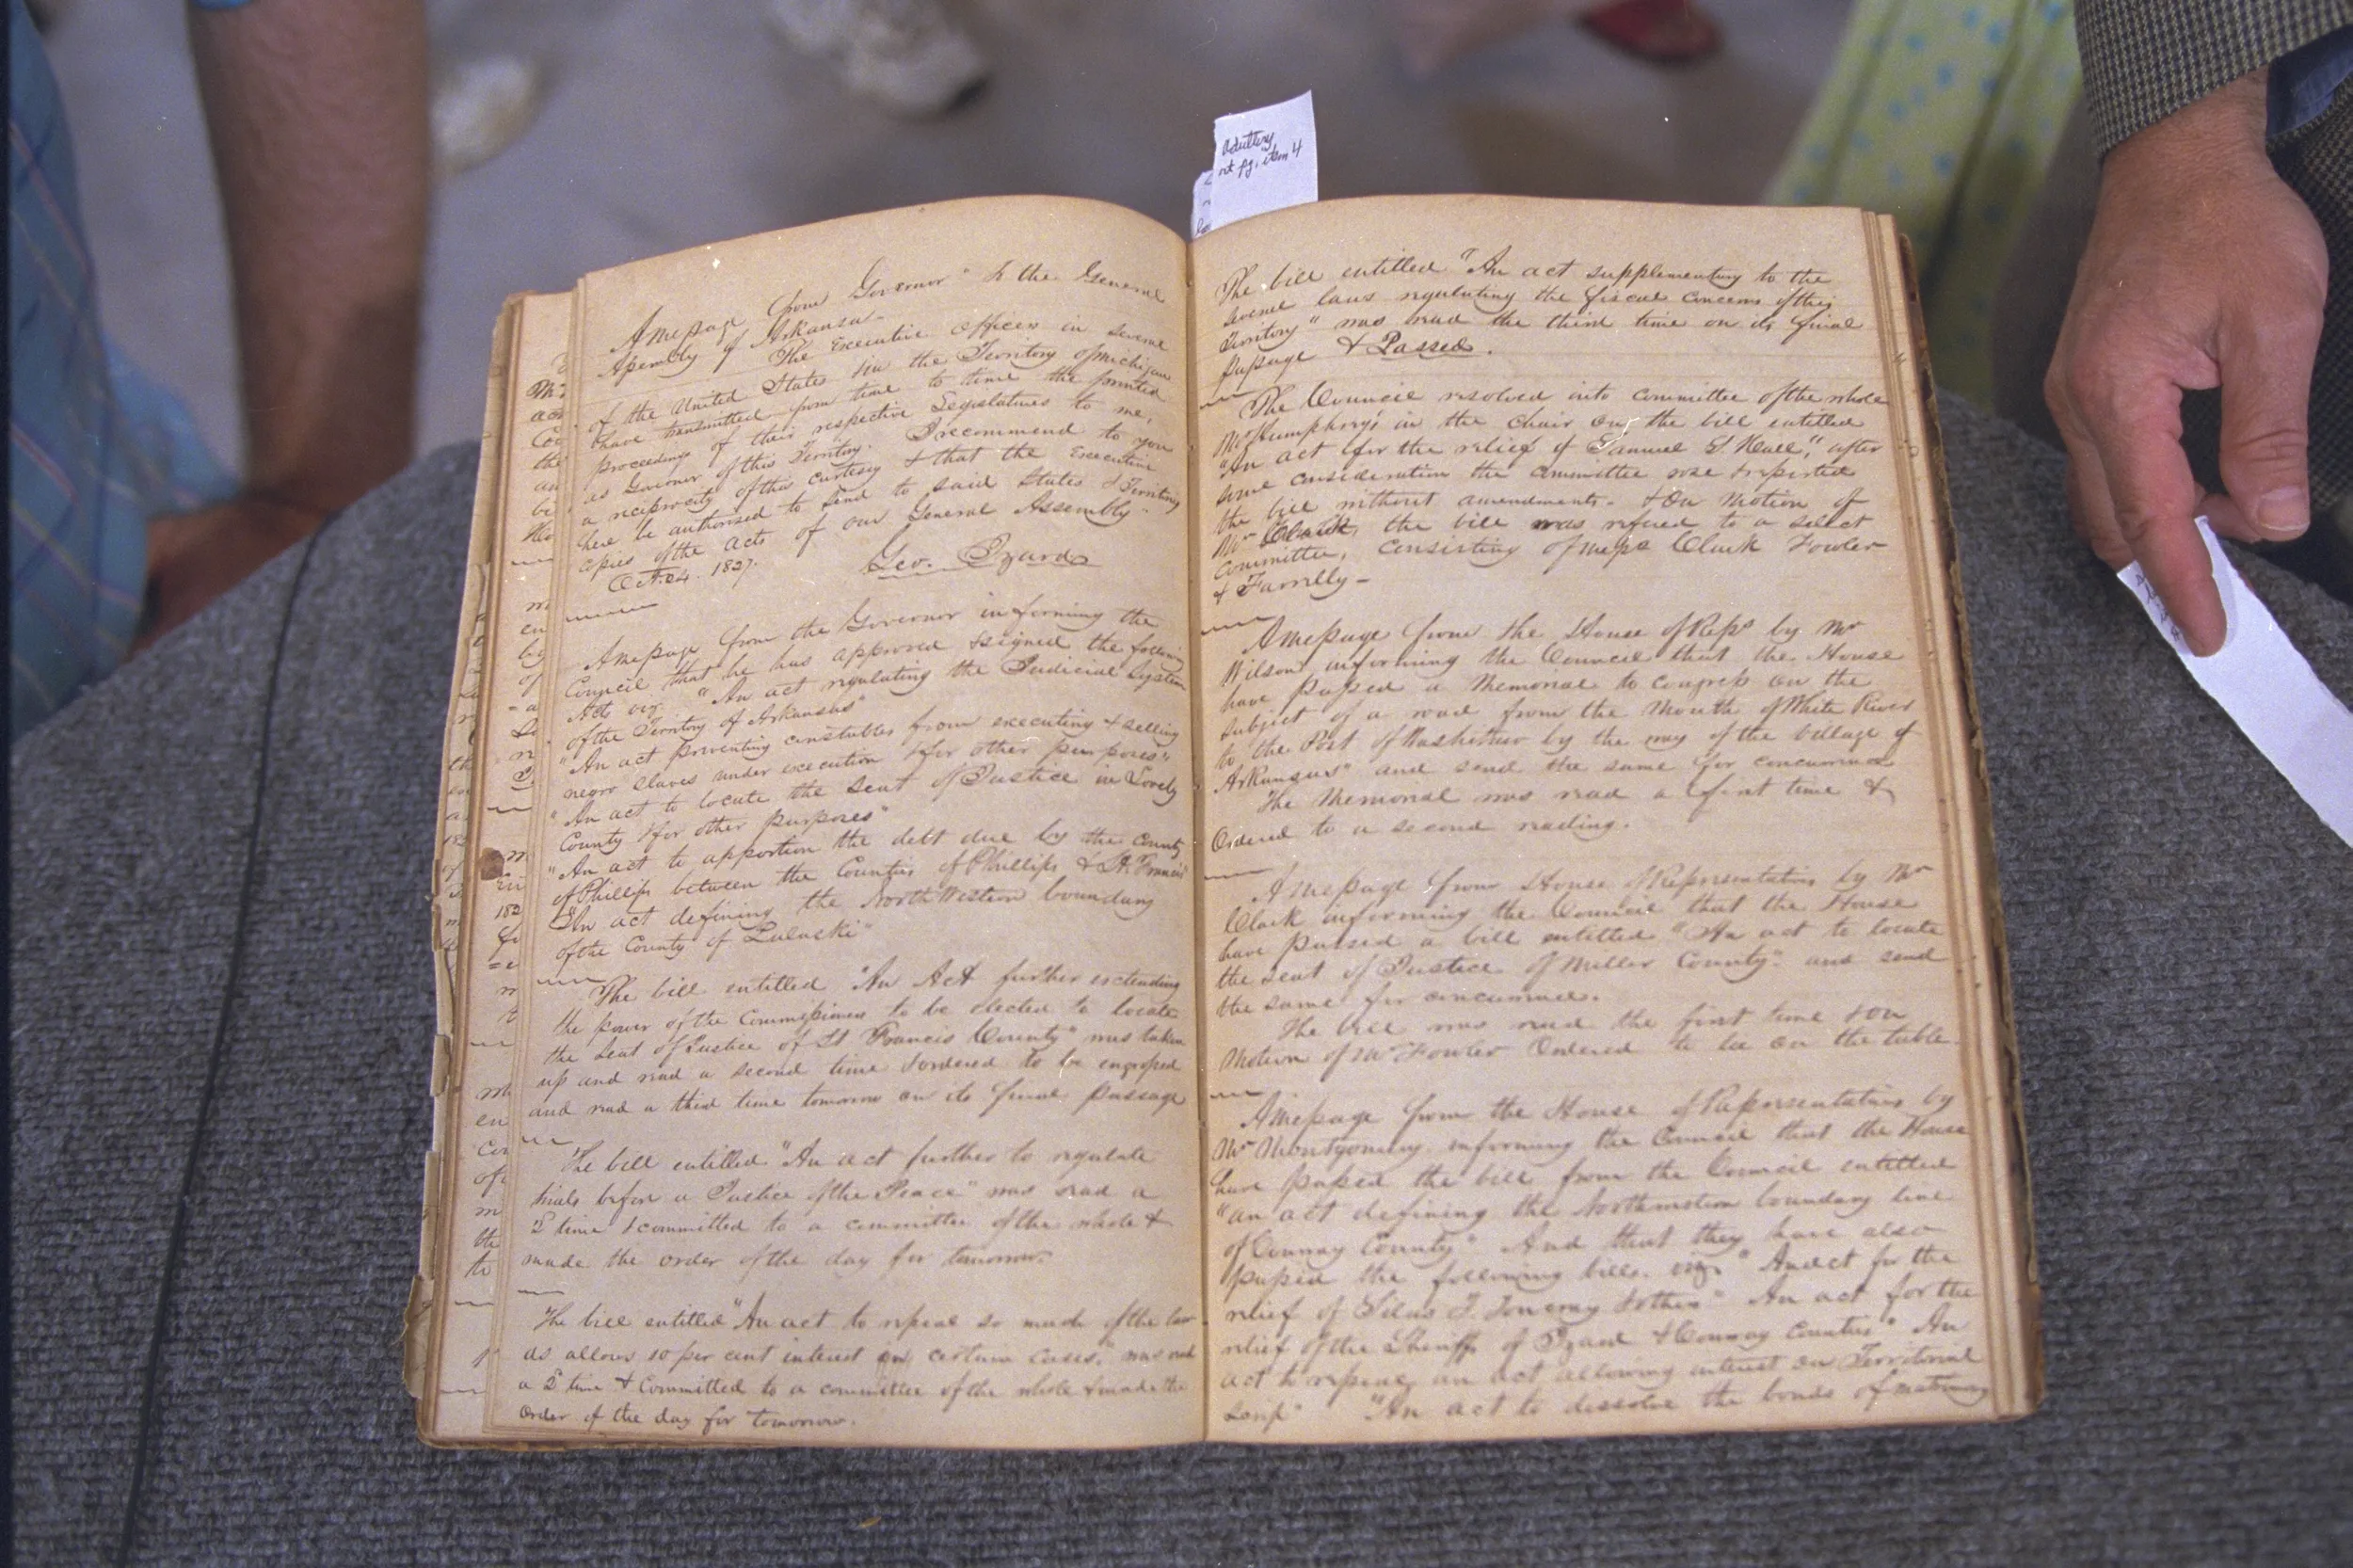 adultery
nt pg. item 4
A message from Governor "to the General
Assembly of Arkansa-
The Executive officers in several
of the United States & in the Territory of Michigan
have transmitted from time to time the printed
proceedings of their respective Legislatures to me,
as Governor of this Territory. I recommend to you
a reciprocity of this curtesy & that the Executive
here be authorised to send to said States & Territory
copies of the acts of our General Assembly.
Oct. 24. 1827. Geo. Izard
A message from the Governor informing the
Council that he has approved & signed the following
Acts viz. "An act regulating the Judicial System
of the Territory of Arkansas"
"An act preventing constables from executing & selling
negro slaves under execution & for other purposes"
"An act to locate the seat of Justice in Lovely
County & for other purposes"
"An act to apportion the debt due by the County
of Phillips between the Counties of Phillips & St. Francis"
"An act defining the North Western boundary
of the County of Pulaski"
The bill entitled "An Act further extending
the power of the Commissioners to be elected to locate
the seat of Justice of St Francis County" was taken
up and read a second time & ordered to be engrossed
and read a third time tomorrow on its final passage
The bill entitled "An act further to regulate
trials before a Justice of the Peace" was read a
2d time & committed to a committee of the whole &
made the order of the day for tomorrow.
The bill entitled "An act to repeal so much of the law
as allows 10 per cent interest in certain cases," was read
a 2d time & Committed to a committee of the whole & made the
order of the day for tomorrow.
The bill entitled "An act supplementary to the
several laws regulating the fiscal concerns of this
Territory" was read the third time on its final
passage & Passed.
The Council resolved into committee of the whole
Mr Humphreys in the chair on the bill entitled
"An act for the relief of Samuel S. Hall", after
some consideration the committee rose & reported
the bill without amendments. & On motion of
Mr Clark, the bill was refered to a select
committee, consisting of messs Clark Fowler
& Farrelly -
A message from the House of Reps by Mr
Wilson informing the Council that the House
have passed a Memorial to congress on the
subject of a road from the Mouth of White River
to the Post of Washitaw by the way of the village of
Arkansas" and send the same for concurrence
The Memorial was read a first time &
Ordered to a second reading.
A message from House of Representatives by Mr
Clark informing the Council that the House
have passed a bill entitled "An act to locate
the seat of Justice of Miller County" and send
the same for concurrence.
The bill was read the first time & on
Motion of Mr Fowler Ordered to lie on the table.
A message from the House of Representatives by
Mr Montgomery informing the Council that the House
have passed the bill from the Council entitled
"an act defining the Northwestern boundary line
of Conway County" And that they have also
passed the following bills. viz. "An act for the
relief of Silas T. Toncray & others" An act for the
relief of the Sheriffs of Izard & Conway Counties" An
act to repeal an act allowing interest on Territorial
Scrip" "An act to dissolve the bonds of matrimony